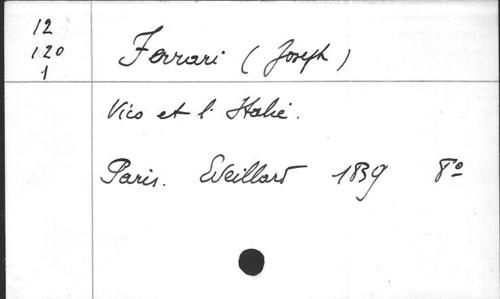 12
120
1
Ferrari (Joseph)
Vico et l'Italie.
Paris. Eveillard 1839 8º